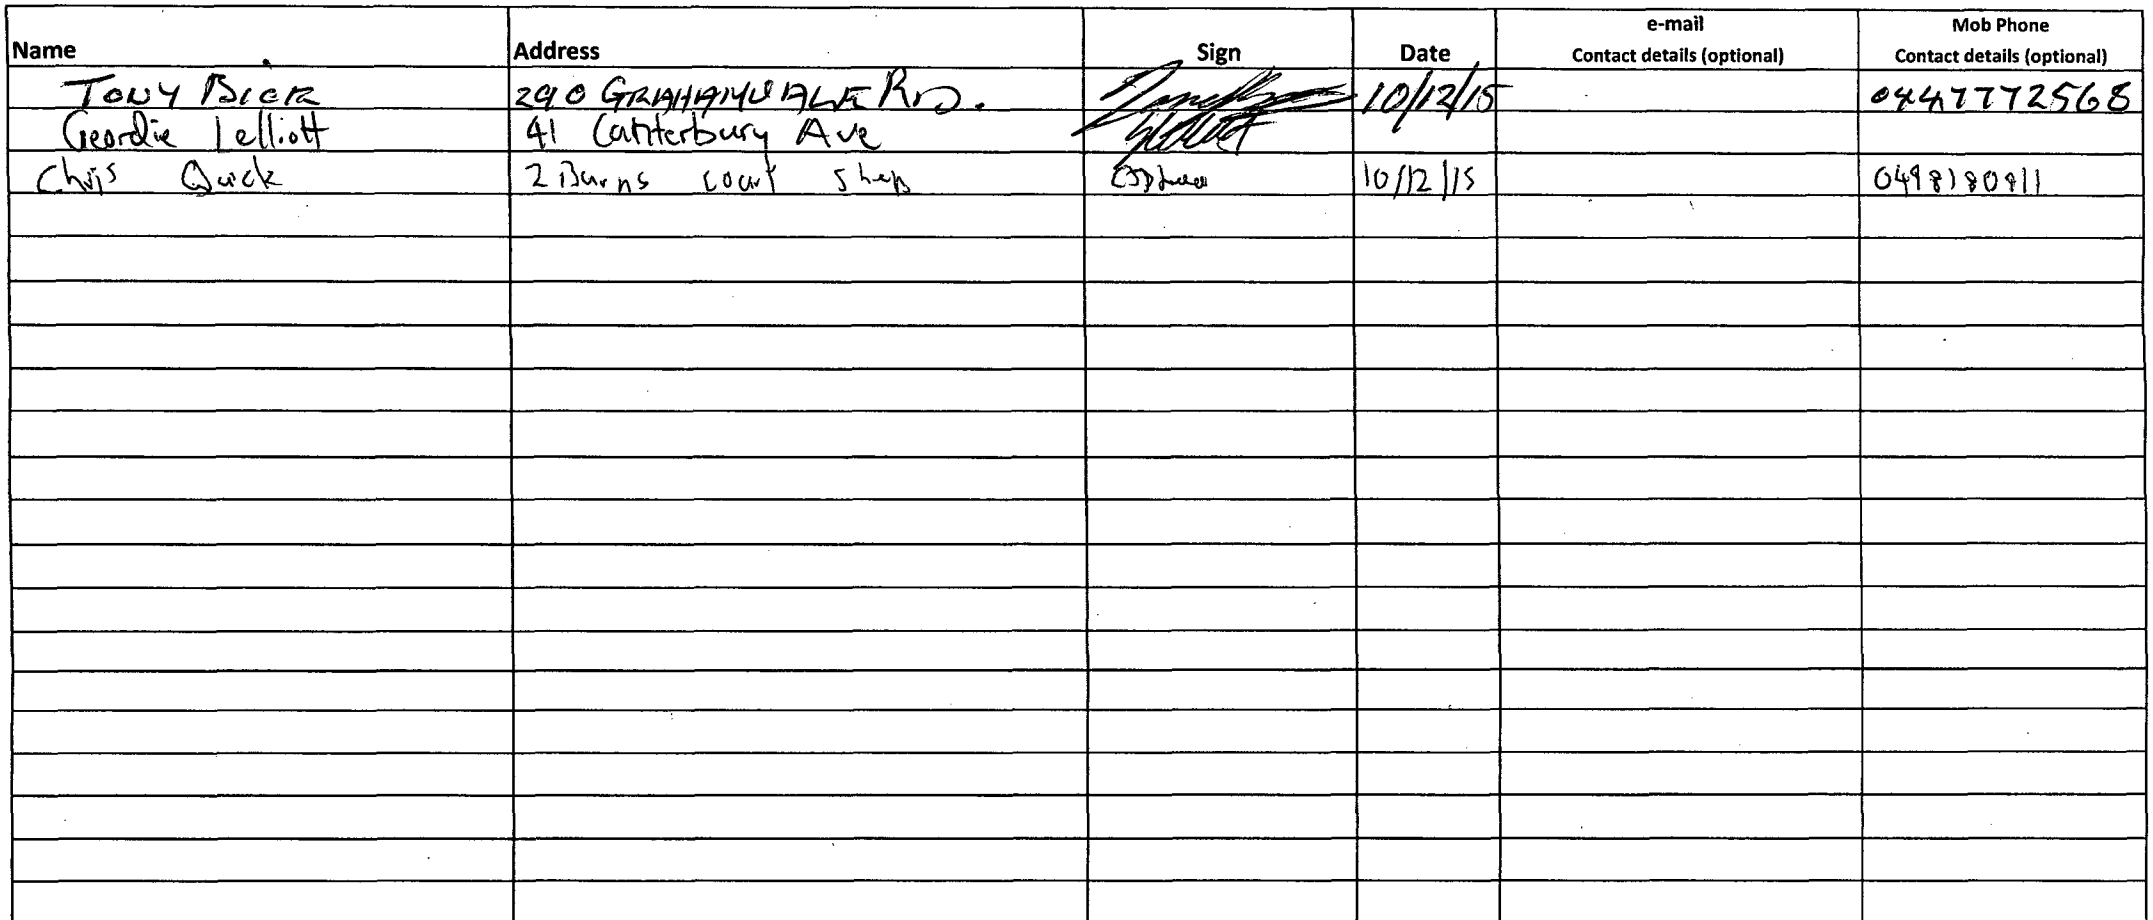 e-mail Mob Phone
Name Address Sign Date Contact details (optional) Contact details (optional)
TONY BICK 290 GRAHAMVALE RD. 10/12/15 0447772568
Geordie Lelliott 41 Canterbury Ave
Chris Quick 2 Burns court Shep 10/12/15